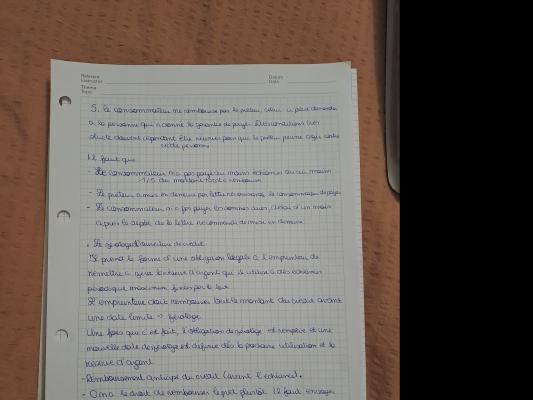 Datum
Date
S. le consommateur ne rembourse pas le prêteur, celui-ci peut demander
à la personne qui a donné la garantie de payer. Des conditions très
strictes doivent cependant être réunies pour que le prêteur puisse agir contre
cette personne
Il faut que
- Le consommateur n'a pas payé au moins échéances ou au moins
1/5 du montant total à rembourser
- Le prêteur a mis en demeure par lettre recommandé le consommateur de payer
- Le consommateur n'a pas payé les sommes dues, délai d'un mois
après le dépôt de la lettre recommandé de mise en demeure.
. Le zérotage d'ouverture de crédit
Il prend la forme d'une obligation légale à l'emprunteur de
remettre à zéro la réserve d'argent qu'il utilise à des échéances
périodique maximum fixées par la loi.
L'emprunteur doit rembourser tout le montant du crédit avant
une date limite → zérotage
Une fois que c'est fait, l'obligation de zérotage est remplie et une
nouvelle date de zérotage est définie dès la prochaine utilisation de la
réserve d'argent
- Remboursement anticipé du crédit (avant l'échéance).
- On a le droit de rembourser le prêt plus tôt. Il faut envoyer